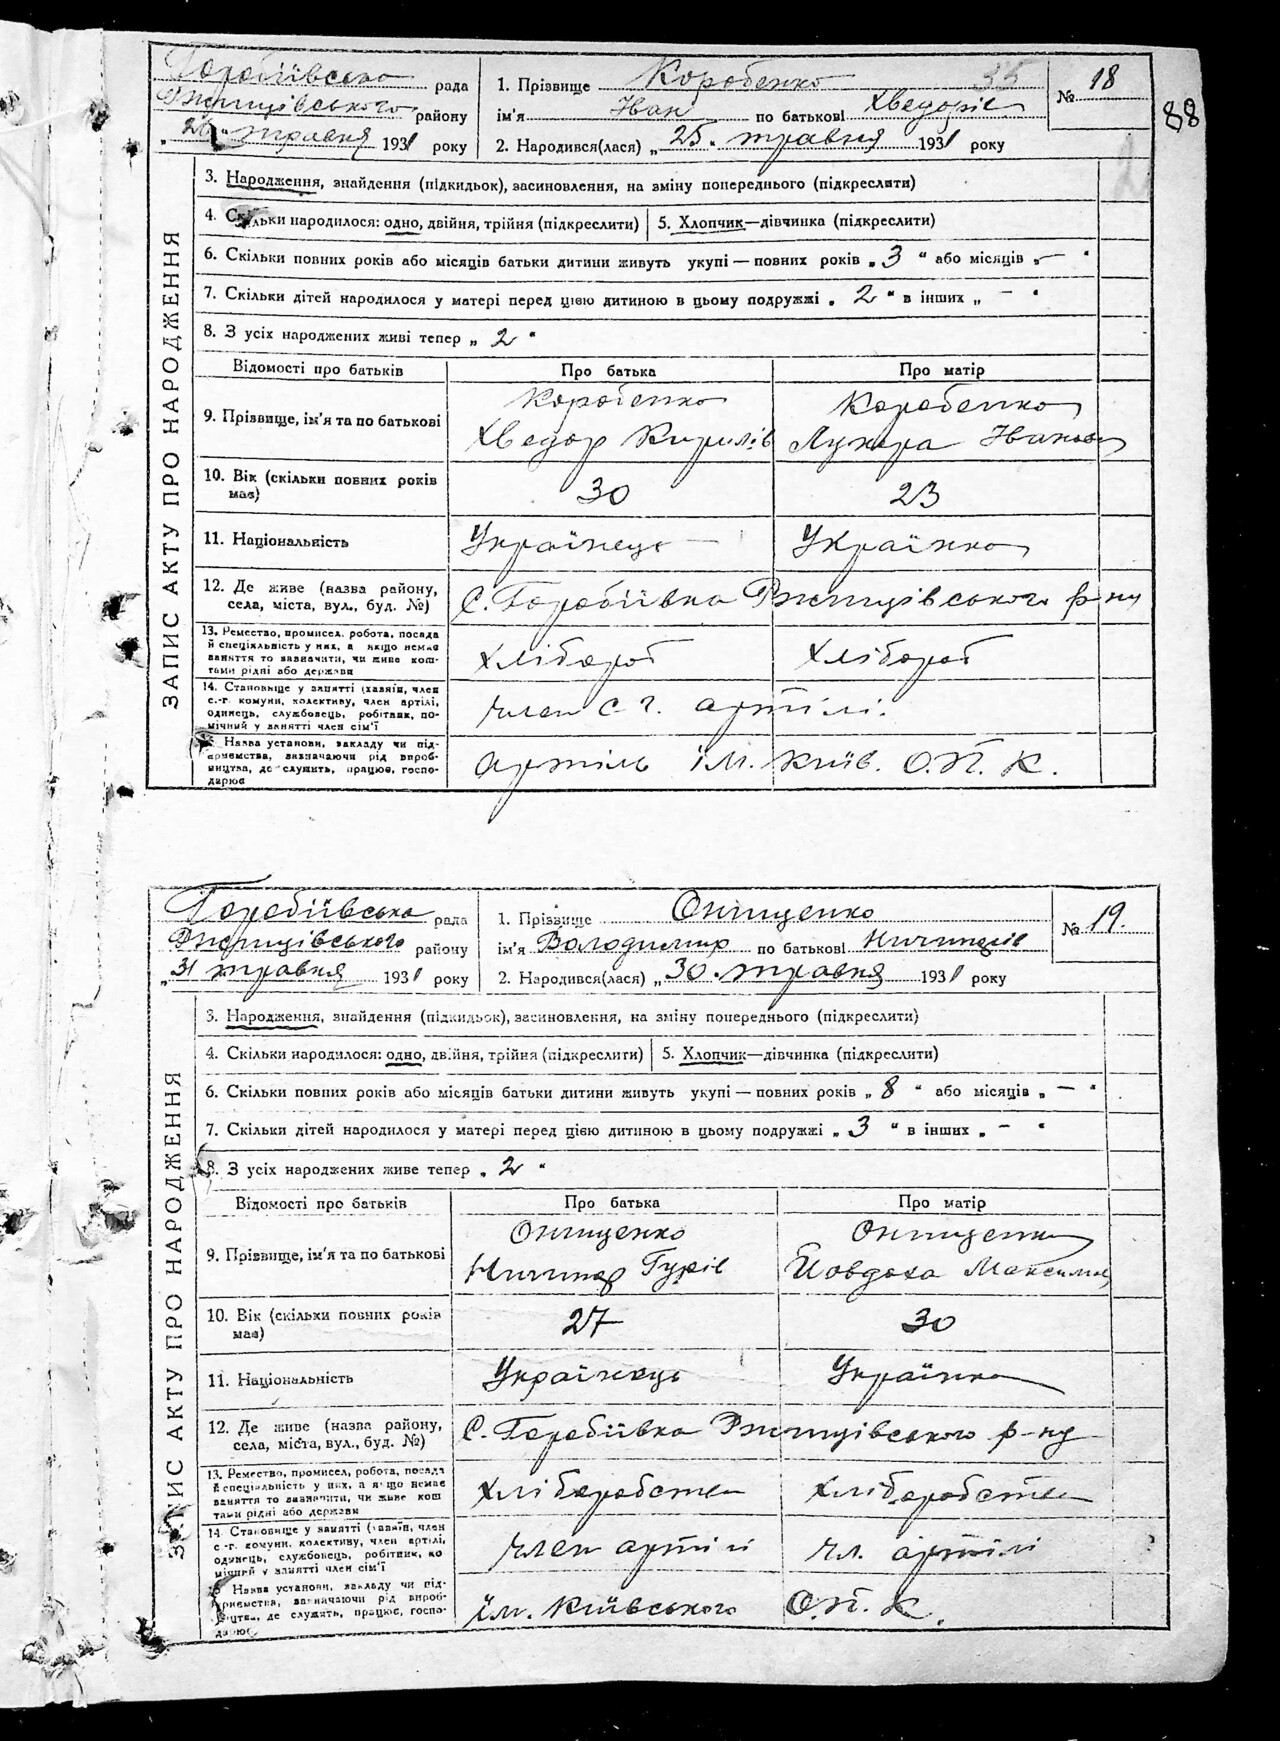 Горобіївська рада
Ржищівського району
„26" травня 1931 року
1. Прізвище Коробенко 35
ім'я Іван по батькові Хведорів
2. Народився(лася) „25" травня 1931 року
№ 18
88
ЗАПИС АКТУ ПРО НАРОДЖЕННЯ
3. Народження, знайдення (підкидьок), засиновлення, на зміну попереднього (підкреслити)
4. Скільки народилося: одно, двійня, трійня (підкреслити) 5. Хлопчик—дівчинка (підкреслити)
6. Скільки повних років або місяців батьки дитини живуть укупі — повних років „3" або місяців „—"
7. Скільки дітей народилося у матері перед цією дитиною в цьому подружжі „2" в інших „—"
8. З усіх народжених живі тепер „2"
Відомості про батьків Про батька Про матір
9. Прізвище, ім'я та по батькові
Коробенко
Хведор Кирилів
Коробенко
Лукера Іванова
10. Вік (скільки повних років
має)
30 23
11. Національність Українець Українка
12. Де живе (назва району,
села, міста, вул., буд. №)
С. Горобіївка Ржищівського р-ну
13. Ремество, промисел, робота, посада
й спеціяльність у них, а якщо немає
заняття то зазначити, чи живе кош-
тами рідні або держави
Хлібороб Хлібороб
14. Становище у занятті (хазяїн, член
с.-г. комуни, колективу, член артілі,
одинець, службовець, робітник, по-
мічний у занятті член сім'ї
член с. г. артілі.
15. Назва установи, закладу чи під-
приємства, зазначаючи рід вироб-
ництва, де служить, працює, госпо-
дарює
артіль ім. Київ. О.П.К.
Горобіївська рада
Ржищівського району
„31 травня 1931 року
1. Прізвище Онищенко
ім'я Володимир по батькові Ничипорів
2. Народився(лася) „30 травня 1931 року
№ 19.
ЗАПИС АКТУ ПРО НАРОДЖЕННЯ
3. Народження, знайдення (підкидьок), засиновлення, на зміну попереднього (підкреслити)
4. Скільки народилося: одно, двійня, трійня (підкреслити) 5. Хлопчик—дівчинка (підкреслити)
6. Скільки повних років або місяців батьки дитини живуть укупі — повних років „8" або місяців „—"
7. Скільки дітей народилося у матері перед цією дитиною в цьому подружжі „3" в інших „—"
8. З усіх народжених живе тепер „2"
Відомості про батьків Про батька Про матір
9. Прізвище, ім'я та по батькові
Онищенко
Ничипор Гурів
Онищенко
Йовдоха Максимів
10. Вік (скільки повних років
має)
27 30
11. Національність Українець Українка
12. Де живе (назва району,
села, міста, вул., буд. №)
С. Горобіївка Ржищівського р-ну
13. Ремество, промисел, робота, посада
й спеціяльність у них, а якщо немає
заняття то зазначити, чи живе кош
тами рідні або держави
Хліборобство Хліборобство
14. Становище у занятті (хазяїн, член
с.-г. комуни, колективу, член артілі,
одинець, службовець, робітник, по
мічний у занятті член сім'ї
член артілі чл. артілі
15 Назва установи, закладу чи під-
приємства, зазначаючи рід вироб-
ництва, де служить, працює, госпо-
дарює
ім. Київського О.П.К.